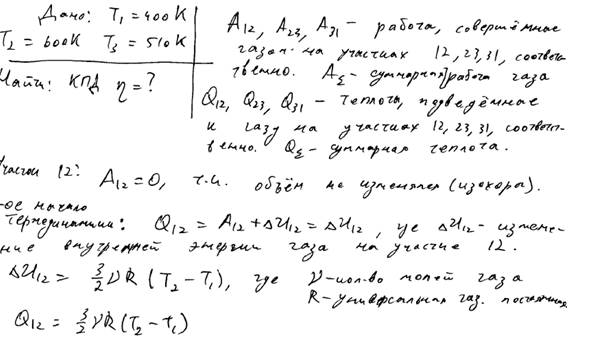 Дано: T₁ = 400K
T₂ = 600K T₃ = 510K
Найти: КПД η = ?
A₁₂, A₂₃, A₃₁ – работа, совершённые
газом на участках 12, 23, 31, соответс-
твенно. A_Σ – суммарная работа газа
Q₁₂, Q₂₃, Q₃₁ – теплоты, подведённые
к газу на участках 12, 23, 31, соответст-
венно. Q_Σ – суммарная теплота.
Участок 12: A₁₂ = 0, т.к. объём не изменялся (изохора).
-ое начало
термодинамики: Q₁₂ = A₁₂ + ΔU₁₂ = ΔU₁₂, где ΔU₁₂ – измене-
ние внутренней энергии газа на участке 12.
ΔU₁₂ = 3/2 νR (T₂ – T₁), где ν – кол-во молей газа
R – универсальная газ. постоянная
Q₁₂ = 3/2 νR (T₂ – T₁)